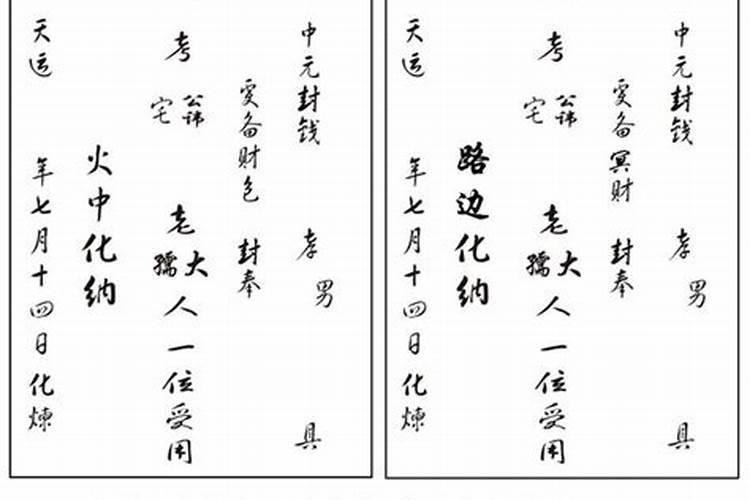 中元封钱 孝男 具
虔备财包 封奉
考 公讳宅 老大孺人一位受用
火中化纳
天运 年七月十四日化煉
中元封钱 孝男 具
虔备冥财 封奉
考 公讳宅 老大孺人一位受用
路边化纳
天运 年七月十四日化煉